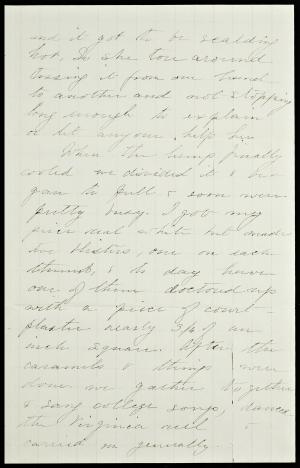 and it got to be scalding
hot, So she tore around
tossing it from one hand
to another and not stopping
long enough to explain
or let anyone help her
When the lump finally
cooled we divided it &
gan to pull & soon were
pretty busy. I got my
piece real white but made
two blisters, one on each
thumb, & to day have
one of them doctored up
with a piece of court-
plaster nearly 3/4 of an
inch square. After the
caramels & things were
done we gather together
& sang college songs, danced
the Virginia reel &
carried on generally.